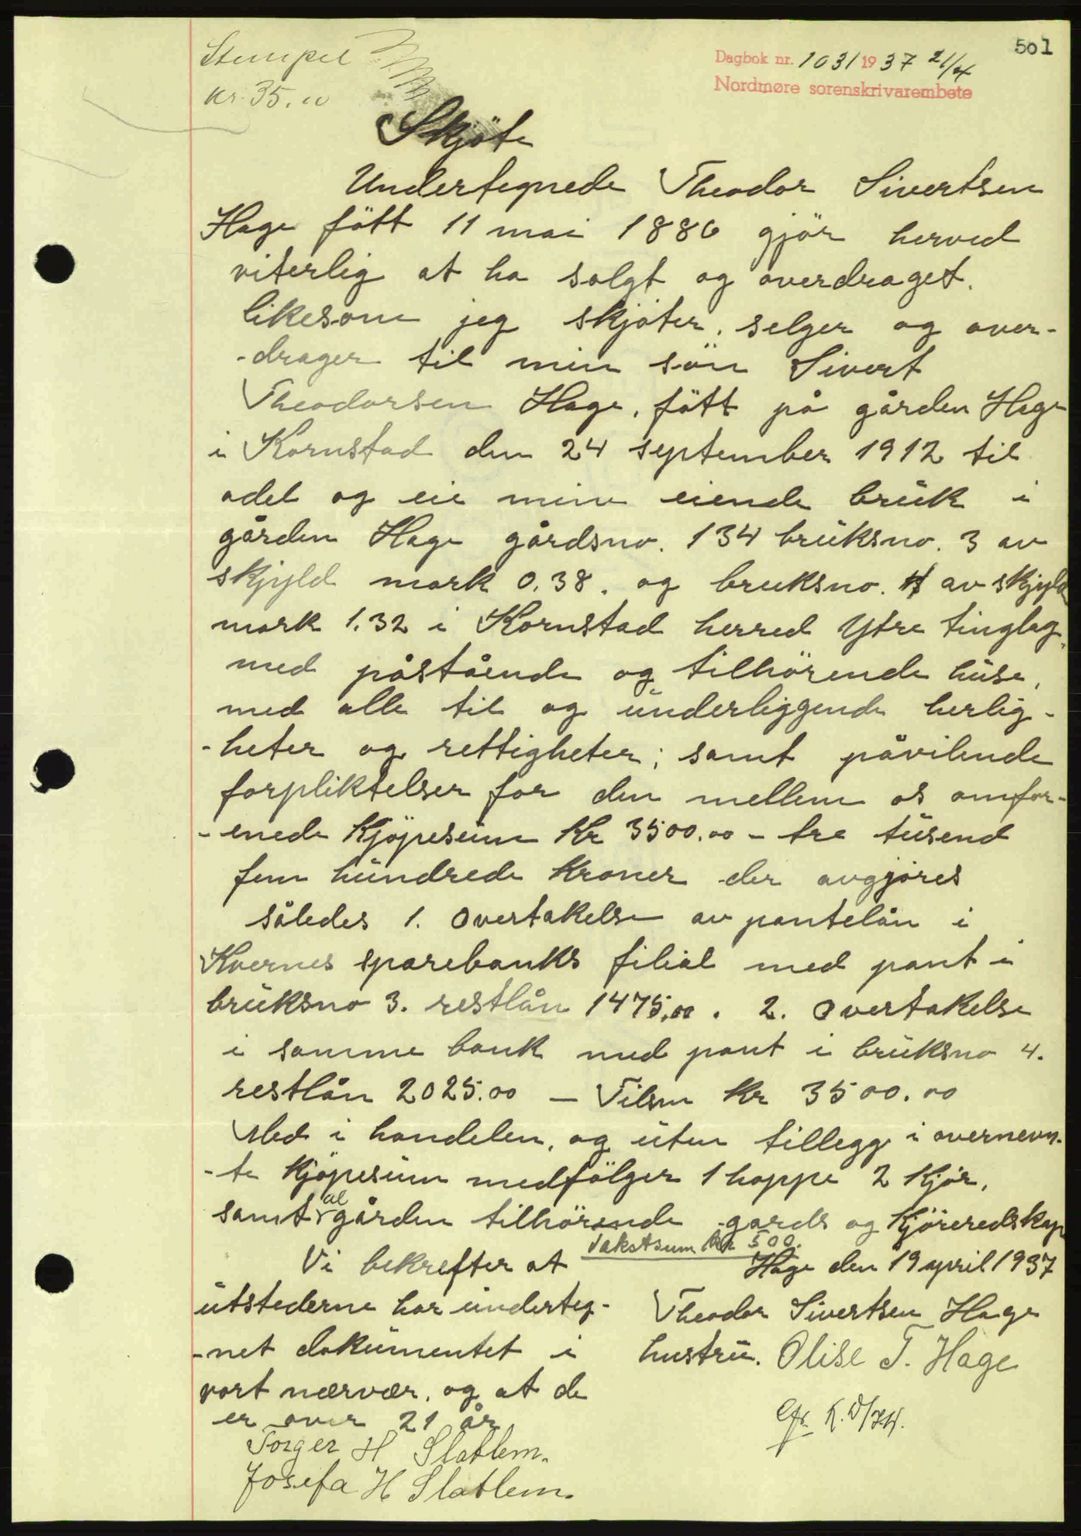 501
Stempel
kr. 35.00
Dagbok nr. 1031 1937 21/4
Nordmøre sorenskrivarembete
Skjöte
Undertegnede Theodor Sivertsen
Hage fött 11 mai 1886 gjör herved
viterlig at ha solgt og overdraget.
likesom jeg skjöter, selger og over-
-drager til min sön Sivert
Theodorsen Hage, fött på gården Hage
i Kornstad den 24 september 1912 til
odel og eie mine eiende brŭk i
gården Hage gårdsno. 134 brŭksno. 3 av
skjyld mark 0.38. og bruksno. 4 av skjyld
mark 1.32 i Kornstad herred Ytre tinglag,
med påstående og tilhörende hŭse,
med alle til og ŭnderliggende herlig-
-heter og rettigheter; samt påvilende
forpliktelser for den mellem os omfor-
-enede Kjöpesŭm Kr 3500.00 - tre tŭsend
fem hŭndrede Kroner der avgjöres
således 1. Overtakelse av pantelån i
Kvernes sparebanks filial med pant i
brŭksno 3. restlån 1475,00. 2. Overtakelse
i samme bank med pant i brŭksno 4.
restlån 2025.00 — Tilsm Kr 3500.00
Med i handelen, og ŭten tillegg i overnevn-
-te Kjöpesŭm medfölger 1 hoppe 2 Kjör,
samt al gården tilhörende gards og Kjöreredskap
Takstsum Kr 500.
Vi bekrefter at
Hage den 19 april 1937
ŭtstederne har ŭnderteg-
Theodor Sivertsen Hage
-net dokŭmentet i
hustrŭ. Olise T. Hage
vort nærvær, og at de
er over 21 år
Torger H Slatlem.
Josefa H Slatlem.